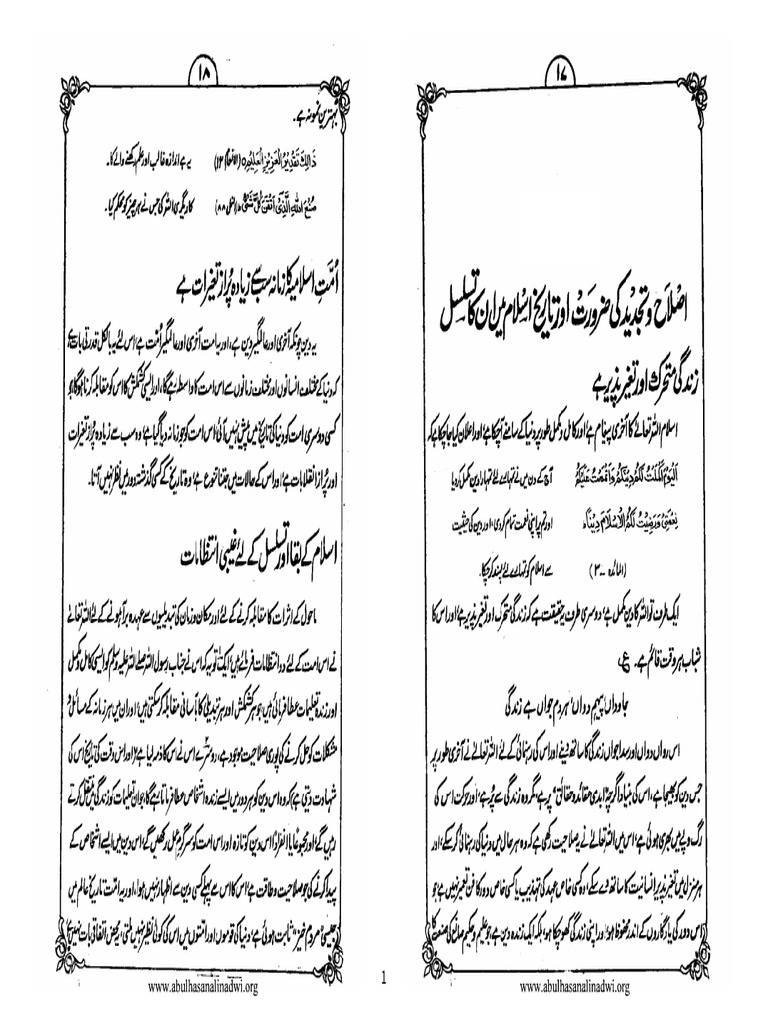 ۱۷
اصلاح و تجدید کی ضرورت اور تاریخ اسلام میں ان کا تسلسل
زندگی متحرک اور تغیر پذیر ہے
اسلام اللہ تعالےٰ کا آخری پیغام ہے، اور کامل و مکمل طور پر دنیا کے سامنے آچکا ہے، اور اعلان کیا جا چکا ہے کہ
اَلْیَوْمَ اَکْمَلْتُ لَکُمْ دِیْنَکُمْ وَاَتْمَمْتُ عَلَیْکُمْ آج کے دن میں نے تمہارے لئے تمہارا دین مکمل کر دیا
نِعْمَتِیْ وَرَضِیْتُ لَکُمُ الْاِسْلَامَ دِیْنًا ہ اور تم پر اپنی نعمت تمام کر دی، اور دین کی حیثیت
(المائدہ -۳) سے اسلام کو تمہارے لئے پسند کر چکا۔
ایک طرف تو اللہ کا دین مکمل ہے، دوسری طرف یہ حقیقت ہے کہ زندگی متحرک اور تغیر پذیر ہے، اور اس کا
شباب ہر وقت قائم ہے۔ ع
جاوداں پیہم دواں، ہر دم جواں ہے زندگی
اس رواں دواں اور سدا جواں زندگی کا ساتھ دینے اور اس کی رہنمائی کے لئے اللہ تعالےٰ نے آخری طور پر
جس دین کو بھیجا ہے، اس کی بنیاد اگرچہ "ابدی عقائد و حقائق" پر ہے، مگر وہ زندگی سے پُر ہے، اور حرکت اس کی
رگ و پے میں بھری ہوئی ہے، اس میں اللہ تعالےٰ نے یہ صلاحیت رکھی ہے کہ وہ ہر حال میں دنیا کی رہنمائی کر سکے، اور
ہر منزل میں تغیر پذیر انسانیت کا ساتھ دے سکے، وہ کسی خاص عہد کی تہذیب یا کسی خاص دور کا فن تعمیر نہیں ہے جو
اس دور کی یادگاروں کے اندر محفوظ ہو، اور اپنی زندگی کھو چکا ہو، بلکہ ایک زندہ دین ہے، جو علیم و حکیم صانع کی صنعت کا
www.abulhasanalinadwi.org
۱۸
بہترین نمونہ ہے۔
ذَالِكَ تَقْدِیْرُ الْعَزِیْزِ الْعَلِیْمِ ہ (الانعام ۱۳) یہ ہے اندازہ غالب اور علم رکھنے والے کا۔
صُنْعَ اللهِ الَّذِیْ اَتْقَنَ کُلَّ شَیْءٍ ط (النمل ۸۸) کاریگری اللہ کی جس نے ہر چیز کو محکم کیا۔
اُمّتِ اسلامیہ کا زمانہ سب سے زیادہ پُر از تغیرات ہے
یہ دین چونکہ آخری اور عالمگیر دین ہے، اور یہ امت آخری اور عالمگیر اُمّت ہے، اس لئے یہ بالکل قدرتی بات ہے
کہ دنیا کے مختلف انسانوں اور مختلف زمانوں سے اس امت کا واسطہ رہے گا، اور ایسی کشمکش کا اس کو مقابلہ کرنا ہوگا، جو
کسی دوسری امت کو دنیا کی تاریخ میں پیش نہیں آئی، اس امت کو جو زمانہ دیا گیا ہے، وہ سب سے زیادہ پُر از تغیرات
اور پُر از انقلابات ہے، اور اس کے حالات میں جتنا تنوع ہے، وہ تاریخ کے کسی گذشتہ دور میں نظر نہیں آتا۔
اسلام کے بقا اور تسلسل کے لئے غیبی انتظامات
ماحول کے اثرات کا مقابلہ کرنے کے لئے اور مکان و زمان کی تبدیلیوں سے عہدہ برآ ہونے کے لئے اللہ تعالےٰ
نے اس امت کے لئے دو انتظامات فرمائے ہیں، ایک تو یہ کہ اس نے جناب رسول اللہ صلے اللہ علیہ وسلم کو ایسی کامل و مکمل
اور زندہ تعلیمات عطا فرمائی ہیں، جو ہر کشمکش اور ہر تبدیلی کا بآسانی مقابلہ کر سکتی ہیں، اور ان میں ہر زمانہ کے مسائل و
مشکلات کو حل کرنے کی پوری صلاحیت موجود ہے، دوسرے اس نے اس کا ذمہ لیا ہے، (اور اس وقت کی تاریخ اس کی
شہادت دیتی ہے) کہ وہ اس دین کو ہر دور میں ایسے زندہ اشخاص عطا فرماتا رہے گا، جو ان تعلیمات کو زندگی میں منتقل کرتے
رہیں گے، اور مجموعًا یا انفرادًا اس دین کو تازہ اور اس امت کو سرگرم عمل رکھیں گے، اس دین میں ایسے اشخاص کے
پیدا کرنے کی جو صلاحیت و طاقت ہے، اس کا اس سے پہلے کسی دین سے اظہار نہیں ہوا، اور یہ امت تاریخ عالم میں
جیسی "مردم خیز" ثابت ہوئی ہے، دنیا کی قوموں اور امتوں میں اس کی کوئی نظیر نہیں ملتی، یہ محض اتفاقی بات نہیں ہے
www.abulhasanalinadwi.org
1